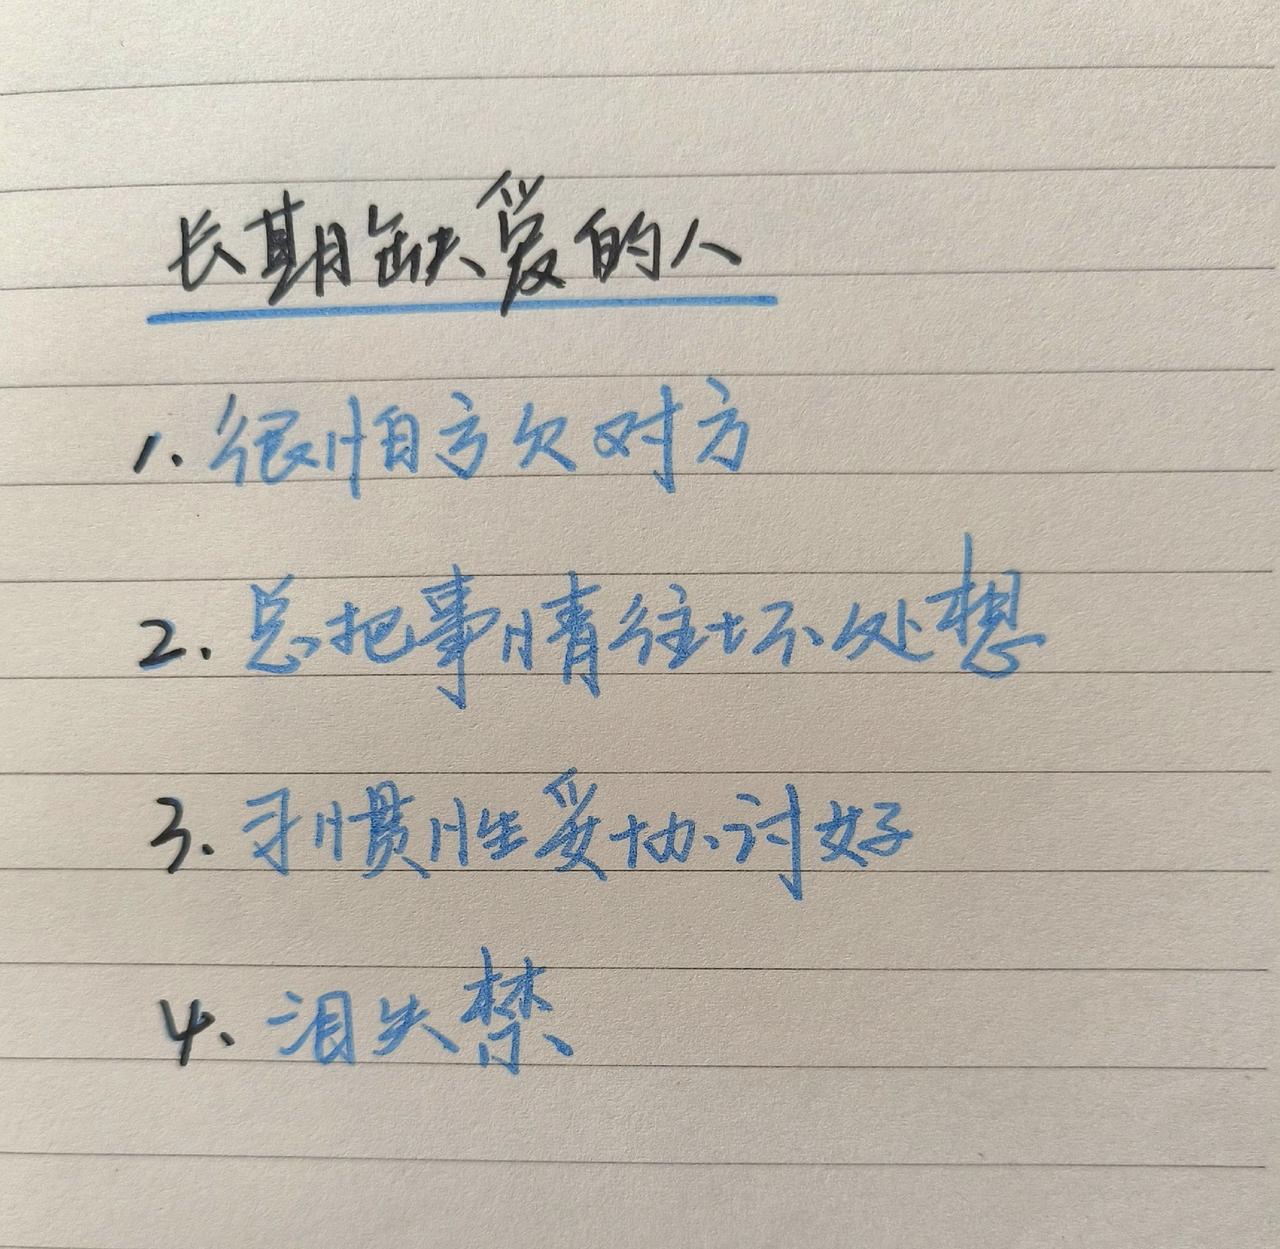 长期缺爱的人
1. 很怕亏欠对方
2. 总把事情往坏处想
3. 习惯性妥协讨好
4. 泪失禁